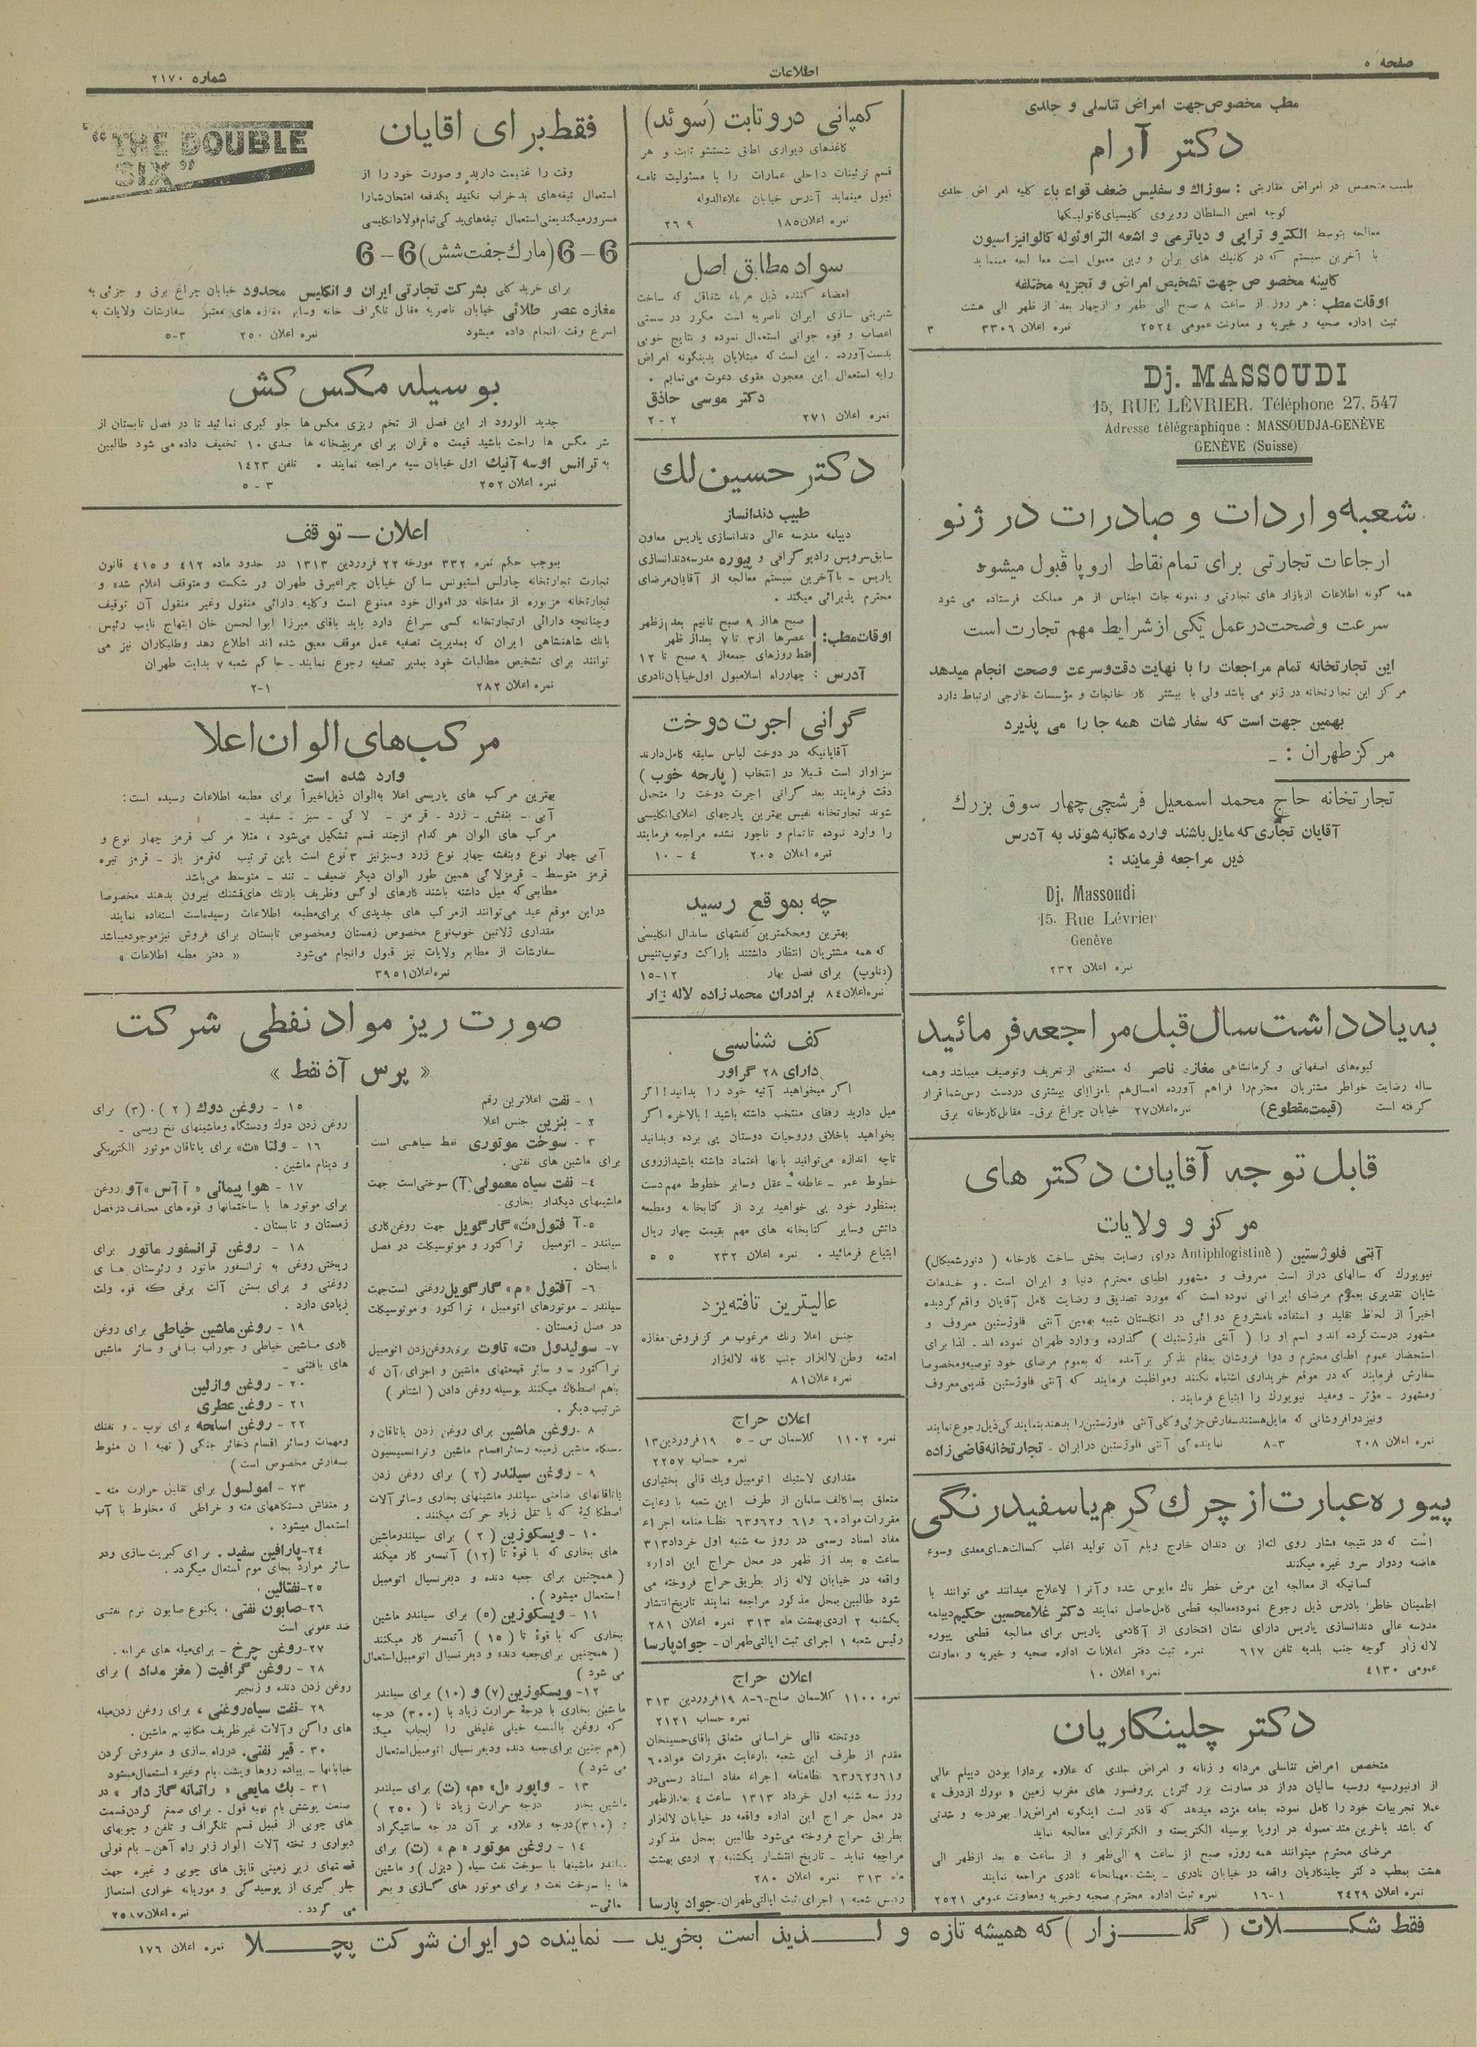 صفحه ۵
اطلاعات
شماره ۲۱۷۰
مطب مخصوص جهت امراض تناسلی و جلدی
دکتر آرام
طبیب متخصص در امراض مقاربتی : سوزاک و سفلیس ضعف قواء باء کلیه امراض جلدی
کوچه امین السلطان روبروی کلیسیای کاتولیکها
معالجه بتوسط الکترو تراپی و دیاترمی و اشعه التراوئوله کالوانیزاسیون
با آخرین سیستم که در کلنیک های برلن و وین معمول است معالجه مینماید
کابینه مخصوص جهت تشخیص امراض و تجزیه مختلفه
اوقات مطب : هر روز از ساعت ۸ صبح الی ظهر و ازچهار بعد از ظهر الی هشت
ثبت اداره صحیه و خیریه و معاونت عمومی ۲۵۲۴ نمره اعلان ۳۳۰۶ ۳
Dj. MASSOUDI
15, RUE LÈVRIER. Téléphone 27.547
Adresse télégraphique : MASSOUDJA-GENÈVE
GENÈVE (Suisse)
شعبه واردات و صادرات در ژنو
ارجاعات تجارتی برای تمام نقاط اروپا قبول میشود
همه گونه اطلاعات ازبازار های تجارتی و نمونه جات اجناس از هر مملکت فرستاده می شود
سرعت وصحت در عمل یکی از شرایط مهم تجارت است
این تجارتخانه تمام مراجعات را با نهایت دقت وسرعت وصحت انجام میدهد
مرکز این تجارتخانه در ژنو می باشد ولی با بیشتر کار خانجات و مؤسسات خارجی ارتباط دارد
بهمین جهت است که سفارشات همه جا را می پذیرد
مرکز طهران : ـ
تجارتخانه حاج محمد اسمعیل فرشچی چهار سوق بزرک
آقایان تجاری که مایل باشند وارد مکاتبه شوند به آدرس
ذیل مراجعه فرمایند :
Dj. Massoudi
15. Rue Lévrier
Genève
نمره اعلان ۲۳۲
به یادداشت سال قبل مراجعه فرمائید
گیوه‌های اصفهانی و کرمانشاهی مغازه ناصر که مستغنی از تعریف وتوصیف میباشد وهمه
ساله رضایت خاطر مشتریان محترم را فراهم آورده امسال هم بامزایای بیشتری در دسترس شما قرار
گرفته است (قیمت مقطوع) نمره اعلان ۲۷ خیابان چراغ برق- مقابل کارخانه برق
قابل توجه آقایان دکتر های
مرکز و ولایات
آنتی فلوژستین ( Antiphlogistine دوای رضایت بخش ساخت کارخانه ( دنورشمیکال)
نیویورک که سالهای دراز است معروف و مشهور اطبای محترم دنیا و ایران است . و خدمات
شایان تقدیری بعموم مرضای ایرانی نموده است که مورد تصدیق و رضایت کامل آقایان واقع گردیده
اخیراً از لحاظ تقلید و استفاده نامشروع دوائی در انگلستان شبیه بهمین آنتی فلوژستین معروف و
مشهور درست کرده اند و اسم او را ( آنتی فلوژستیک ) گذارده و وارد طهران نموده اند . لذا برای
استحضار عموم اطبای محترم و دوا فروشان بمقام تذکر برآمده که بعموم مرضای خود توصیه ومخصوصا
سفارش فرمایند که در موقع خریداری اشتباه نکنند ومواظبت فرمایند که آنتی فلوژستین قدیمی معروف
ومشهور - مؤثر - ومفید نیویورک را ابتیاع فرمایند .
ونیز دوافروشانی که مایل هستند سفارش جزئی و کلی آنتی فلوژستین را بدهند بنمایندگی ذیل رجوع نمایند
نمره اعلان ۲۰۸ ۳-۸ نمایندگی آنتی فلوژستین درایران - تجارتخانه قاضی زاده
پیوره عبارت از چرک کرم یا سفید رنگی
است که در نتیجه فشار روی لثه از بن دندان خارج وبنام آن تولید اغلب کسالت‌های معدی وسوء
هاضمه ودوار سرو غیره میکنند
کسانیکه از معالجه این مرض خطر ناک مایوس شده وآنرا لاعلاج میدانند می توانند با
اطمینان خاطر بادرس ذیل رجوع نموده معالجه قطعی کامل حاصل نمایند دکتر غلامحسین حکیم دیپلمه
مدرسه عالی دندانسازی پاریس دارای نشان افتخاری از آکادمی پاریس برای معالجه قطعی پیوره
لاله زار کوچه جنب بلدیه تلفن ۶۱۷ نمره ثبت دفتر اعلانات اداره صحیه و خیریه و معاونت
عمومی ۴۱۳۰ نمره اعلان ۱۰
دکتر چلینکاریان
متخصص امراض تناسلی مردانه و زنانه و امراض جلدی که علاوه بردارا بودن دیپلم عالی
از اونیورسیه روسیه سالیان دراز در معاونت بزرگترین پروفسور های مغرب زمین
عملا تجربیات خود را کامل نموده بعامه مژده میدهد که قادر است اینگونه امراض را بهردرجه و شدتی
که باشد باخرین متد معموله در اروپا بوسیله الکتریسته و الکتروتراپی معالجه نماید
مرضای محترم میتوانند همه روزه صبح از ساعت ۹ الی ظهر و از ساعت ۵ بعد ازظهر الی
هشت بمطب دکتر چلینکاریان واقعه در خیابان نادری - پشت مهمانخانه نادری مراجعه نمایند
نمره اعلان ۲۴۲۹ ۱-۱۶ نمره ثبت اداره محترم صحیه وخیریه ومعاونت عمومی ۲۵۲۱
کمپانی دروتابت (سوئد)
کاغذهای دیواری اطاق شستشو ثابت و هر
قسم تزئینات داخلی عمارات را با مسئولیت تامه
قبول مینماید آدرس خیابان علاءالدوله
نمره اعلان ۱۸۵ ۹ ۲۶
سواد مطابق اصل
امضاء کننده ذیل مرباء شقاقل که ساخت
شرینی سازی ایران ناصریه است مکرر در سستی
اعصاب و قوه جوانی استعمال نموده و نتایج خوبی
بدست آورده . این است که مبتلایان بدینگونه امراض
رابه استعمال این معجون مقوی دعوت می‌نمایم .
دکتر موسی حاذق
نمره اعلان ۲۷۱ ۲-۲
دکتر حسین لک
طبیب دندانساز
دیپلمه مدرسه عالی دندانسازی پاریس معاون
سابق سرویس رادیوگرافی و پیوره مدرسه دندانسازی
پاریس - باآخرین سیستم معالجه از آقایان مرضای
محترم پذیرائی میکند .
اوقات مطب:
صبح ها از ۹ صبح تانیم بعدازظهر
عصرها از ۳ تا ۷ بعداز ظهر
فقط روزهای جمعه از ۹ صبح تا ۱۲
آدرس : چهارراه اسلامبول اول خیابان نادری
گرانی اجرت دوخت
آقایانیکه در دوخت لباس سلیقه کامل دارند
سزاوار است قبلا در انتخاب ( پارچه خوب )
دقت فرمایند بعد گرانی اجرت دوخت را متحمل
شوند تجارتخانه نفیس بهترین پارچهای اعلای انگلیسی
را وارد نموده تاتمام و ناجور نشده مراجعه فرمایند
نمره اعلان ۲۰۵ ۴ - ۱۰
چه بموقع رسید
بهترین ومحکمترین کفشهای ساندال انگلیسی
که همه مشتریان انتظار داشتند باراکت وتوپ تنیس
(دنلوپ) برای فصل بهار ۱۲-۱۵
نمره اعلان ۸۴ برادران محمدزاده لاله زار
کف شناسی
دارای ۲۸ گراور
اگر میخواهید آتیه خود را بدانید! اگر
میل دارید رفقای منتخب داشته باشید! بالاخره اگر
بخواهید باخلاق وروحیات دوستان پی برده وبدانید
تاچه اندازه می‌توانید بآنها اعتماد داشته باشید ازروی
خطوط عمر - عاطفه - عقل وسایر خطوط مهم دست
بمنظور خود پی خواهید برد از کتابخانه ومطبعه
دانش وسایر کتابخانه های مهم بقیمت چهار ریال
ابتیاع فرمائید . نمره اعلان ۲۳۲ ۵ ۵
عالیترین تافته یزد
جنس اعلا رنگ مرغوب مرکز فروش - مغازه
امتعه وطن لاله‌زار جنب کافه لاله‌زار
نمره علان ۸۱
اعلان حراج
نمره ۱۱۰۲ کلاسمان س - ۵ ۱۹ فروردین ۱۳
نمره حساب ۲۲۵۷
مقداری لاستیک اتومبیل ویک قالی بختیاری
متعلق بساکالف سلمان از طرف این شعبه با رعایت
مقررات مواد ۶۰ و۶۱ و۶۲ و۶۳ نظامنامه اجراء
مفاد اسناد رسمی در روز سه شنبه اول خرداد ۳۱۳
ساعت ۵ بعد از ظهر در محل حراج این اداره
واقعه در خیابان لاله زار بطریق حراج فروخته می
شود طالبین بمحل مذکور مراجعه نمایند تاریخ انتشار
یکشنبه ۲ اردیبهشت ماه ۳۱۳ نمره اعلان ۲۸۱
رئیس شعبه ۱ اجرای ثبت ایالتی طهران - جواد پارسا
اعلان حراج
نمره ۱۱۰۰ کلاسمان صلح-۶-۸ ۱۹ فروردین ۳۱۳
نمره حساب ۲۱۲۱
دوتخته قالی خراسانی متعلق باقای حسینخان
مقدم از طرف این شعبه بارعایت مقررات مواد ۶۰
و۶۱ و۶۲ و۶۳ نظامنامه اجراء مفاد اسناد رسمی در
روز سه شنبه اول خرداد ۱۳۱۳ ساعت ۴ بعدازظهر
در محل حراج این اداره واقعه در خیابان لاله‌زار
بطریق حراج فروخته می‌شود طالبین بمحل مذکور
مراجعه نمایند - تاریخ انتشار یکشنبه ۲ اردی بهشت
ماه ۳۱۳ نمره اعلان ۲۸۰
رئیس شعبه ۱ اجرای ثبت ایالتی طهران - جواد پارسا
فقط برای آقایان
"THE DOUBLE
SIX"
وقت را غنیمت دارید و صورت خود را از
استعمال تیغه‌های بد خراب نکنید یکدفعه امتحان شمارا
مسرور میکند یعنی استعمال تیغه‌های یدکی تمام فولاد انگلیسی
6-6 (مارک جفت شش) 6-6
برای خرید کلی بشرکت تجارتی ایران و انگلیس محدود خیابان چراغ برق و جزئی به
مغازه عصر طلائی خیابان ناصریه مقابل تلگراف خانه وسایر مغازه های معتبر سفارشات ولایات به
اسرع وقت انجام داده میشود نمره اعلان ۲۵۰ ۳-۵
بوسیله مگس کش
جدید الورود از این فصل از تخم ریزی مگس ها جلو گیری نمائید تا در فصل تابستان از
شر مگس ها راحت باشید قیمت ۵ قران برای مریضخانه ها صدی ۱۰ تخفیف داده می شود طالبین
به ترانس اوسه آنیک اول خیابان سپه مراجعه نمایند . تلفن ۱۴۲۳
نمره اعلان ۲۵۲ ۳ - ۵
اعلان - توقف
بموجب حکم نمره ۳۳۲ مورخه ۲۲ فروردین ۱۳۱۳ در حدود ماده ۴۱۲ و ۴۱۵ قانون
تجارت تجارتخانه چارلس استیونس ساکن خیابان چراغبرق طهران ورشکسته ومتوقف اعلام شده و
تجارتخانه مزبوره از مداخله در اموال خود ممنوع است وکلیه دارائی منقول وغیر منقول آن توقیف
وچنانچه دارائی ازتجارتخانه کسی سراغ دارد باید باقای میرزا ابوالحسن خان ابتهاج نایب رئیس
بانک شاهنشاهی ایران که بمدیریت تصفیه عمل موقف معین شده اند اطلاع دهد وطلبکاران نیز می
توانند برای تشخیص مطالبات خود بمدیر تصفیه رجوع نمایند - حاکم شعبه ۷ بدایت طهران
نمره اعلان ۲۸۲ ۱-۲
مرکب‌های الوان اعلا
وارد شده است
بهترین مرکب های پاریسی اعلا به الوان ذیل اخیراً برای مطبعه اطلاعات رسیده است :
آبی - بنفش - زرد - قرمز - لاکی - سبز - سفید -
مرکب های الوان هر کدام ازچند قسم تشکیل می‌شود ، مثلا مرکب قرمز چهار نوع و
آبی چهار نوع وبنفشه چهار نوع زرد وسبزنیز ۳ نوع است باین ترتیب که قرمز باز - قرمز تیره
قرمز متوسط - قرمز لاکی همین طور الوان دیگر ضعیف - تند - متوسط می‌باشد
مطابعی که میل داشته باشند کارهای لوکس وظریف بارنگ های قشنگ بیرون بدهند مخصوصا
دراین موقع عید می‌توانند ازمرکب های جدیدی که برای مطبعه اطلاعات رسیده است استفاده نمایند
مقداری ژلاتین خوب نوع مخصوص زمستان ومخصوص تابستان برای فروش نیز موجود میباشد
سفارشات از مطابع ولایات نیز قبول وانجام می‌شود « دفتر مطبعه اطلاعات »
نمره اعلان ۳۹۵۱
صورت ریز مواد نفطی شرکت
« پرس آذ نفط »
۱ - نفت اعلاترین رقم
۲ - بنزین جنس اعلا
۳ - سوخت موتوری نفط سیاهی است
برای ماشین های نفتی .
۴- نفت سیاه معمولی (آ) سوختی است جهت
ماشینهای دیگدار بخاری .
۵- آفتول «ت» گارگویل جهت روغن کاری
سیلندر - اتومبیل تراکتور و موتوسیکلت در فصل
تابستان .
۶- آفتول «م» گارگویل روغنی است جهت
سیلندر - موتورهای اتومبیل ، تراکتور و موتوسیکلت
در فصل زمستان .
۷- سولیدول «ت» تاوت برای روغن زدن اتومبیل
تراکتور - و سائر قسمتهای ماشین و اجزای آن که
باهم اصطکاک میکنند بوسیله روغن دادن ( اشتافر )
ترتیب دیگر .
۸ - روغن ماشین برای روغن زدن یاتاقان و
دستگاه ماشین زمینه وسائر اقسام ماشین وترانسمیسیون
۹ - روغن سیلندر (۲) برای روغن زدن
یاتاقانهای ضامنی سیلندر ماشینهای بخاری وسائر آلات
اصطکاکیه که با ثقل زیاد حرکت میکنند .
۱۰ - ویسکوزین (۲) برای سیلندر ماشین
های بخاری که با قوۀ تا (۱۲) آتمسفر کار میکند
( همچنین برای جعبه دنده و دیفرنسیال اتومبیل
استعمال میشود ) .
۱۱ - ویسکوزین (۵) برای سیلندر ماشین
بخاری که با قوۀ تا (۱۵) آتمسفر کار میکنند
( همچنین برای جعبه دنده و دیفرنسیال اتومبیل استعمال
می شود )
۱۲- ویسکوزین (۷) و (۱۰) برای سیلندر
ماشین بخاری با درجۀ حرارت زیاد با (۳۰۰) درجه
که روغن بالنسبه خیلی غلیظی را ایجاب میکند
(هم چنین برای جعبه دنده ودیفرنسیال اتومبیل استعمال
می شود )
۱۳ - واپور «ل» «م» (ت) برای سیلندر
ماشین بخار درجه حرارت زیاد تا ( ۲۵۰ )
و (۳۱۰) درجه و علاوه بر آن درجه سانتیگراد
۱۴ - روغن موتور «م» (ت) برای
ماشینها با سوخت نفت سیاه ( دیزل ) و ماشین
ها با سوخت نفت و برای موتور های گازی و بحر
مائی -
۱۵ - روغن دوک (۲) . (۳) برای
روغن زدن دوک ودستگاه وماشینهای نخ ریسی -
۱۶ - ولتا «ت» برای یاتاقان موتور الکتریکی
و دینام ماشین .
۱۷ - هوا پیمائی « آآس » آو روغن
برای موتور ها با ساختمانها و قوه های مختلف در فصل
زمستان و تابستان .
۱۸ - روغن ترانسفور ماتور برای
ریختن روغن به ترانسفور ماتور و رئوستان های
روغنی و برای بستن آلت برقی که قوه ولت
زیادی دارد .
۱۹ - روغن ماشین خیاطی برای روغن
کاری ماشین خیاطی و جوراب بافی و سائر ماشین
های بافتنی -
۲۰ - روغن وازلین
۲۱ - روغن عطری
۲۲ - روغن اسلحه برای توپ - و تفنگ
ومهمات وسائر اقسام ذخائر جنگی ( تهیه آن منوط
بسفارش مخصوص است )
۲۳ - امولسول برای تقلیل حرارت مته -
و منقاش دستگاههای مته و خراطی که مخلوط با آب
استعمال میشود .
۲۴- پارافین سفید . برای کبریت سازی ودر
سائر موارد بجای موم استعمال میگردد .
۲۵- نفتالین .
۲۶- صابون نفتی ، یکنوع صابون نرم نفتی
ضد عفونی است
۲۷- روغن چرخ - برای میله های عرابه .
۲۸ - روغن گرافیت ( مغز مداد ) برای
روغن زدن دنده و زنجیر
۲۹ - نفت سیاه روغنی ، برای روغن زدن میله
های واگن وآلات غیر ظریف مکانیسم ماشین .
۳۰ - قیر نفتی . درراه سازی و مفروش کردن
خیابانها - پیاده روها وپشت بام وغیره استعمال میشود
۳۱ - یک مایعی « راتمانه گاز دار » در
صنعت پوشش بام تهیه قول - برای صمغ کردن قسمت
های چوبی از قبیل قسم تلگراف و تلفن و چوبهای
دیواری و تخته آلات الوار زیر راه آهن - بام فوقی
قسمتهای زیر زمینی قایق های چوبی و غیره جهت
جلو گیری از پوسیدگی و موریانه خواری استعمال
می گردد . نمره اعلان ۲۵۸۷
فقط شکلات ( گلزار ) که همیشه تازه و لذیذ است بخرید - نماینده در ایران شرکت پچلا نمره اعلان ۱۷۶